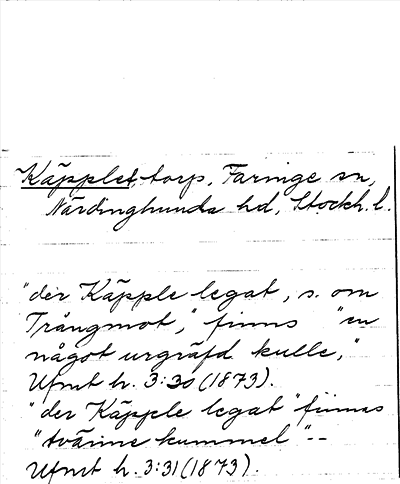 Käpplet, torp, Faringe sn,
Närdinghundra hd, Stockh. l.
"der Käpple legat, s. om
Trångmot," finns "en
något urgräfd kulle,"
Ufmt h. 3:30 (1873).
"der Käpple legat" finnas
"tvänne kummel" --
Ufmt h. 3:31 (1873).